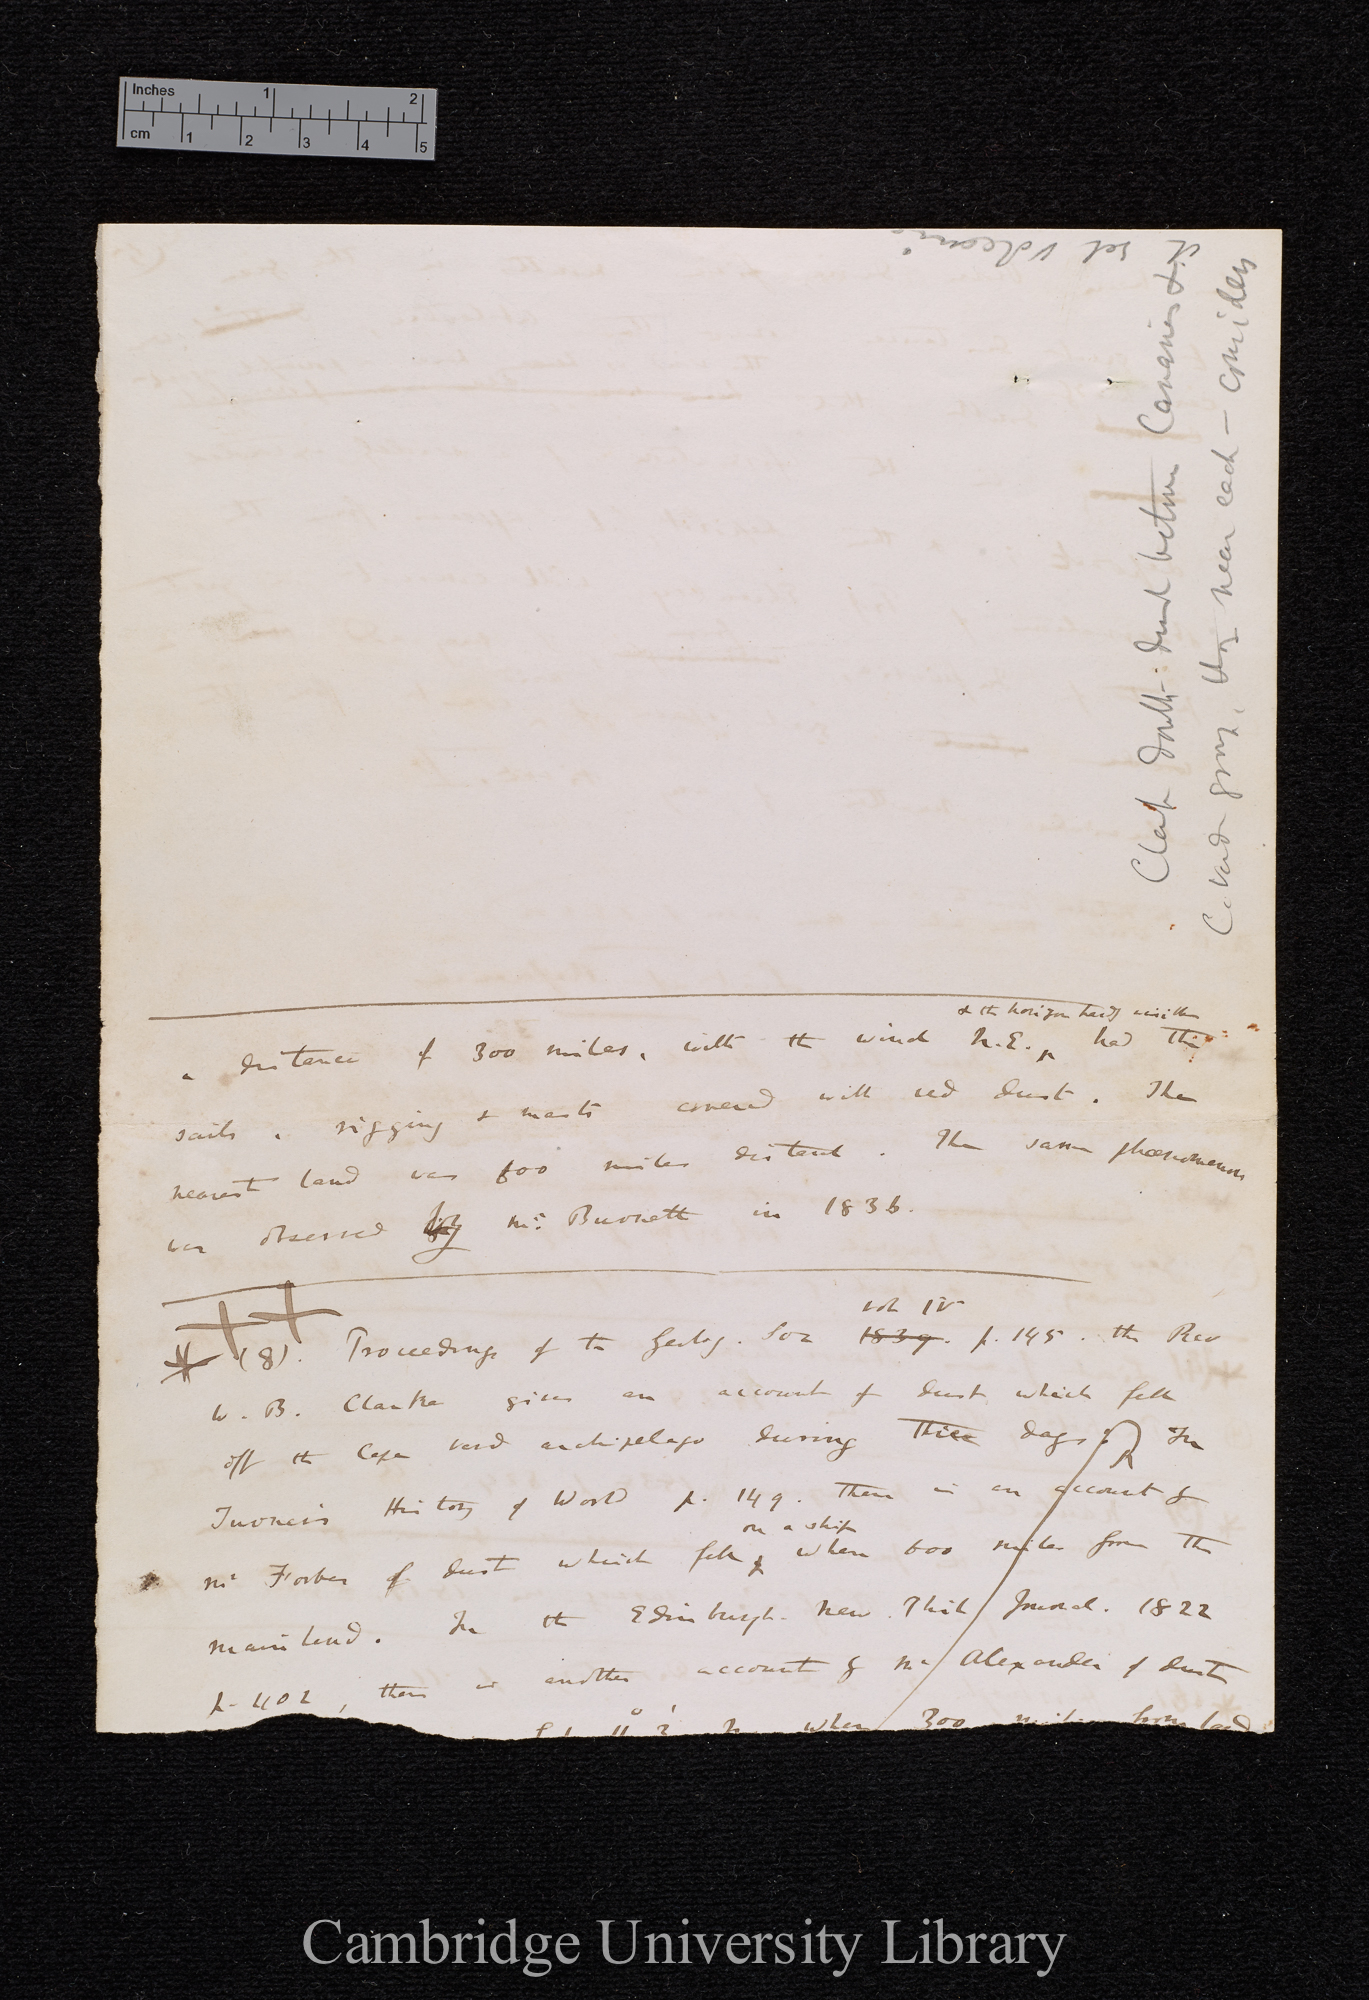 Inches 1 2
cm 1 2 3 4 5
Clark doubts dust between Canaries &
C. Verd group, they near each — considers
it sol Volcanic
& the horizon hazy
a distance of 300 miles, with the wind N.E. had the
sails, rigging & masts covered with red dust. The
nearest land was 600 miles distant. The same phœnomenon
was observed by Mr. Burnett in 1836.
vol IV
(8). Proceedings of the Geolog. Soc 1839. p. 145. the Rev
W. B. Clarke gives an account of dust which fell
off the Cape Verd archipelago during three days. In
Turner's History of World p. 149. there is an account of
on a ship
Mr Forbes of dust which fell when 600 miles from the
mainland. In the Edinburgh. New. Phil Journal. 1822
p. 402, there is another account by Mr Alexander of dust
11° 3' N. when 300 miles from land
Cambridge University Library